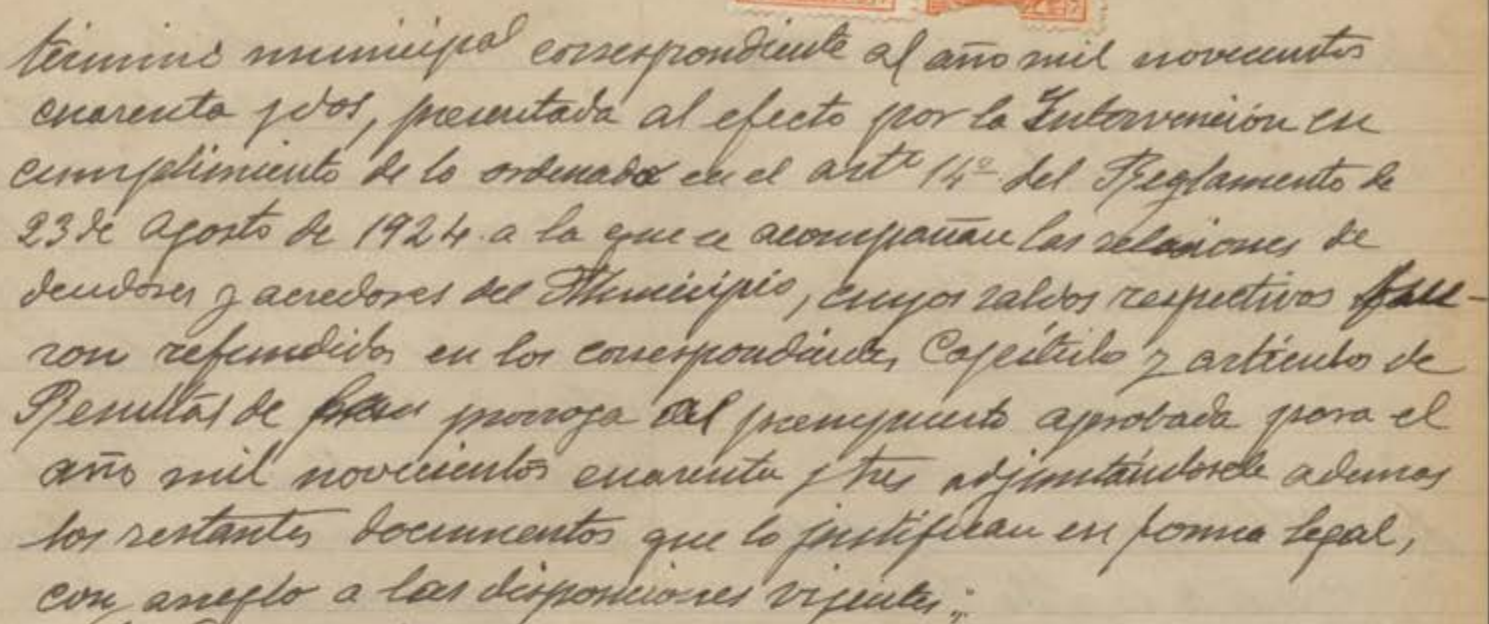 término municipal correspondiente al año mil novecientos
cuarenta y dos, presentada al efecto por la Intervención en
cumplimiento de lo ordenado en el artº 14º del Reglamento de
23 de Agosto de 1924 a la que se acompañan las relaciones de
deudores y acredores del Municipio, cuyos saldos respectivos fue-
ron refundidos en los correspondientes Capítulo y artículos de
Resultas de prorroga del presupuesto aprobada para el
año mil novecientos cuarenta y tres adjuntándosele ademas
los restantes documentos que lo justifican en forma legal,
con arreglo a las disposiciones vigentes;